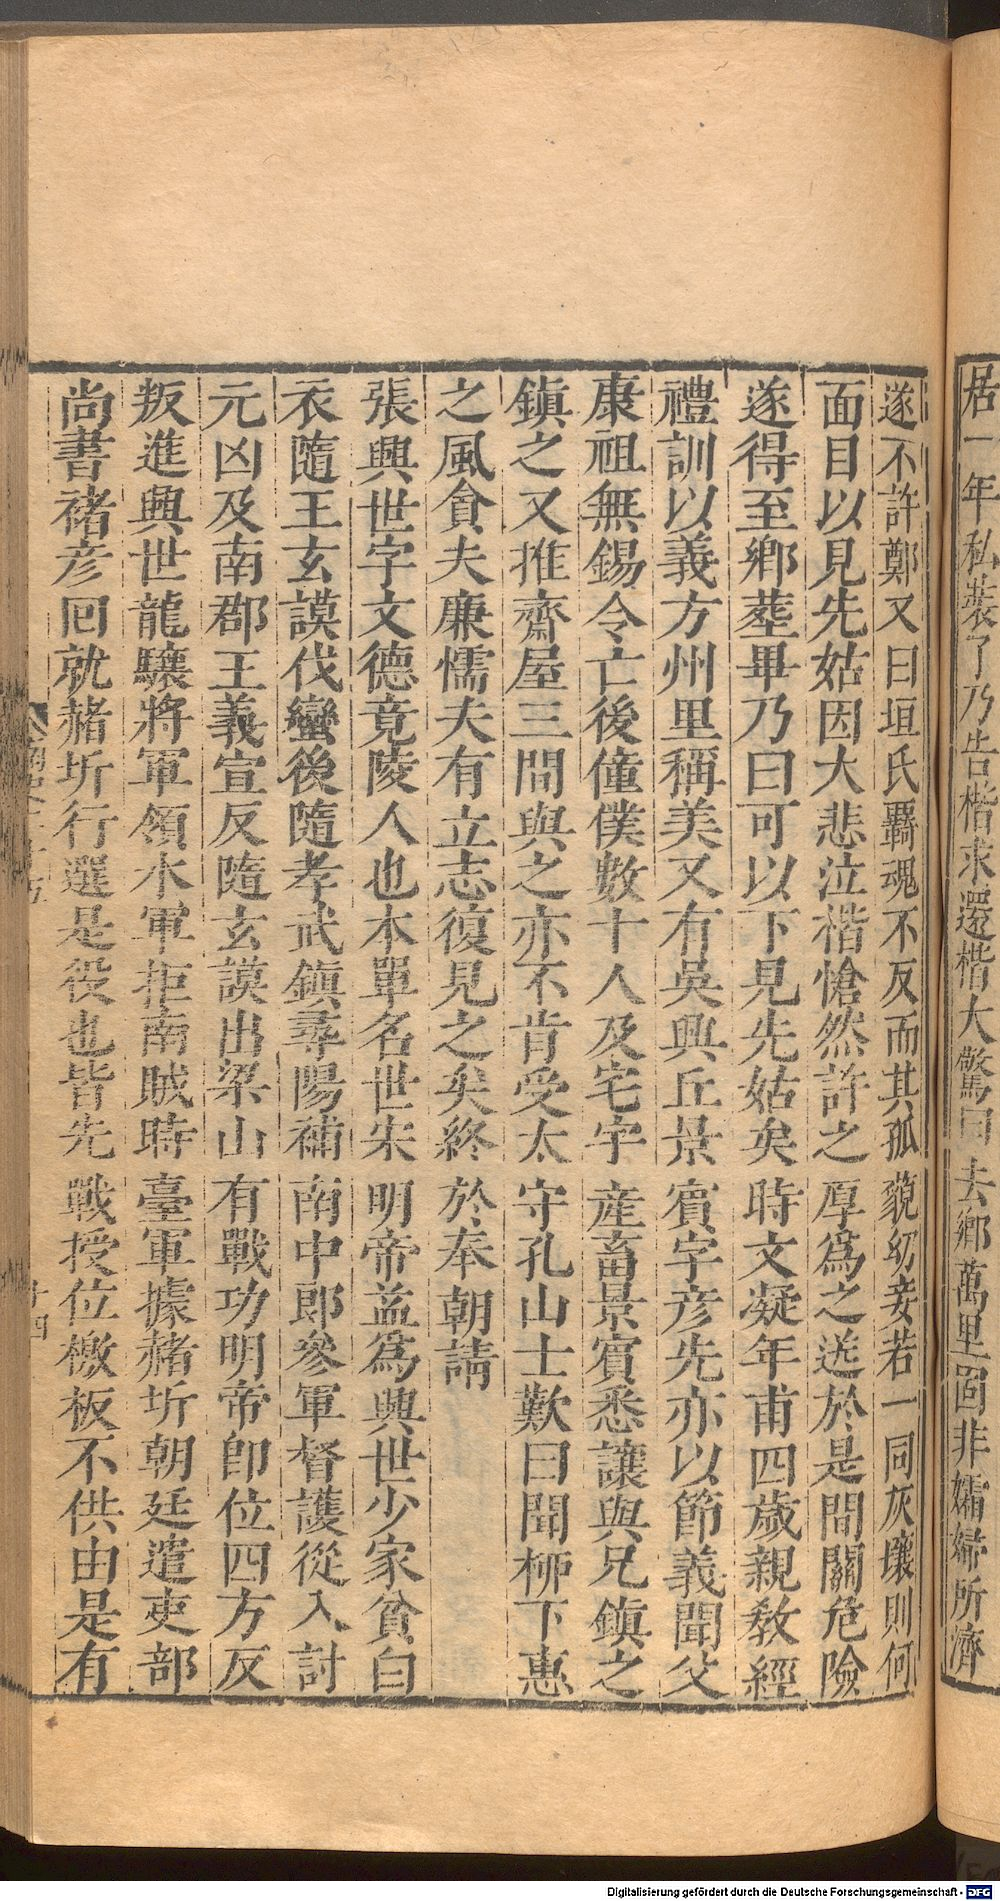 居一年私裝了乃告楷求還楷大驚曰去鄉萬里固非孀婦所濟
遂不許鄭又曰垣氏羇魂不反而其孤藐幼妾若一同灰壤則何
面目以見先姑因大悲泣楷愴然許之厚爲之送於是間關危險
遂得至鄉葬畢乃曰可以下見先姑矣時文凝年甫四歲親教經
禮訓以義方州里稱美又有吳興丘景賓字彦先亦以節義聞父
康祖無錫令亡後僮僕數十人及宅宇產畜景賓悉讓與兄鎮之
鎮之又推齋屋三間與之亦不肯受太守孔山士歎曰聞栁下惠
之風貪夫廉懦夫有立志復見之矣終於奉朝請
張興世字文德竟陵人也本單名世宋明帝益爲興世少家貧白
衣隨王玄謨伐蠻後隨孝武鎮尋陽補南中郎參軍督護從入討
元凶及南郡王義宣反隨玄謨出梁山有戰功明帝即位四方反
叛進興世龍驤將軍領水軍拒南賊時臺軍據赭圻朝廷遣吏部
尚書褚彦回就赭圻行選是役也皆先戰授位檄板不供由是有
十四
Digitalisierung gefördert durch die Deutsche Forschungsgemeinschaft - DFG